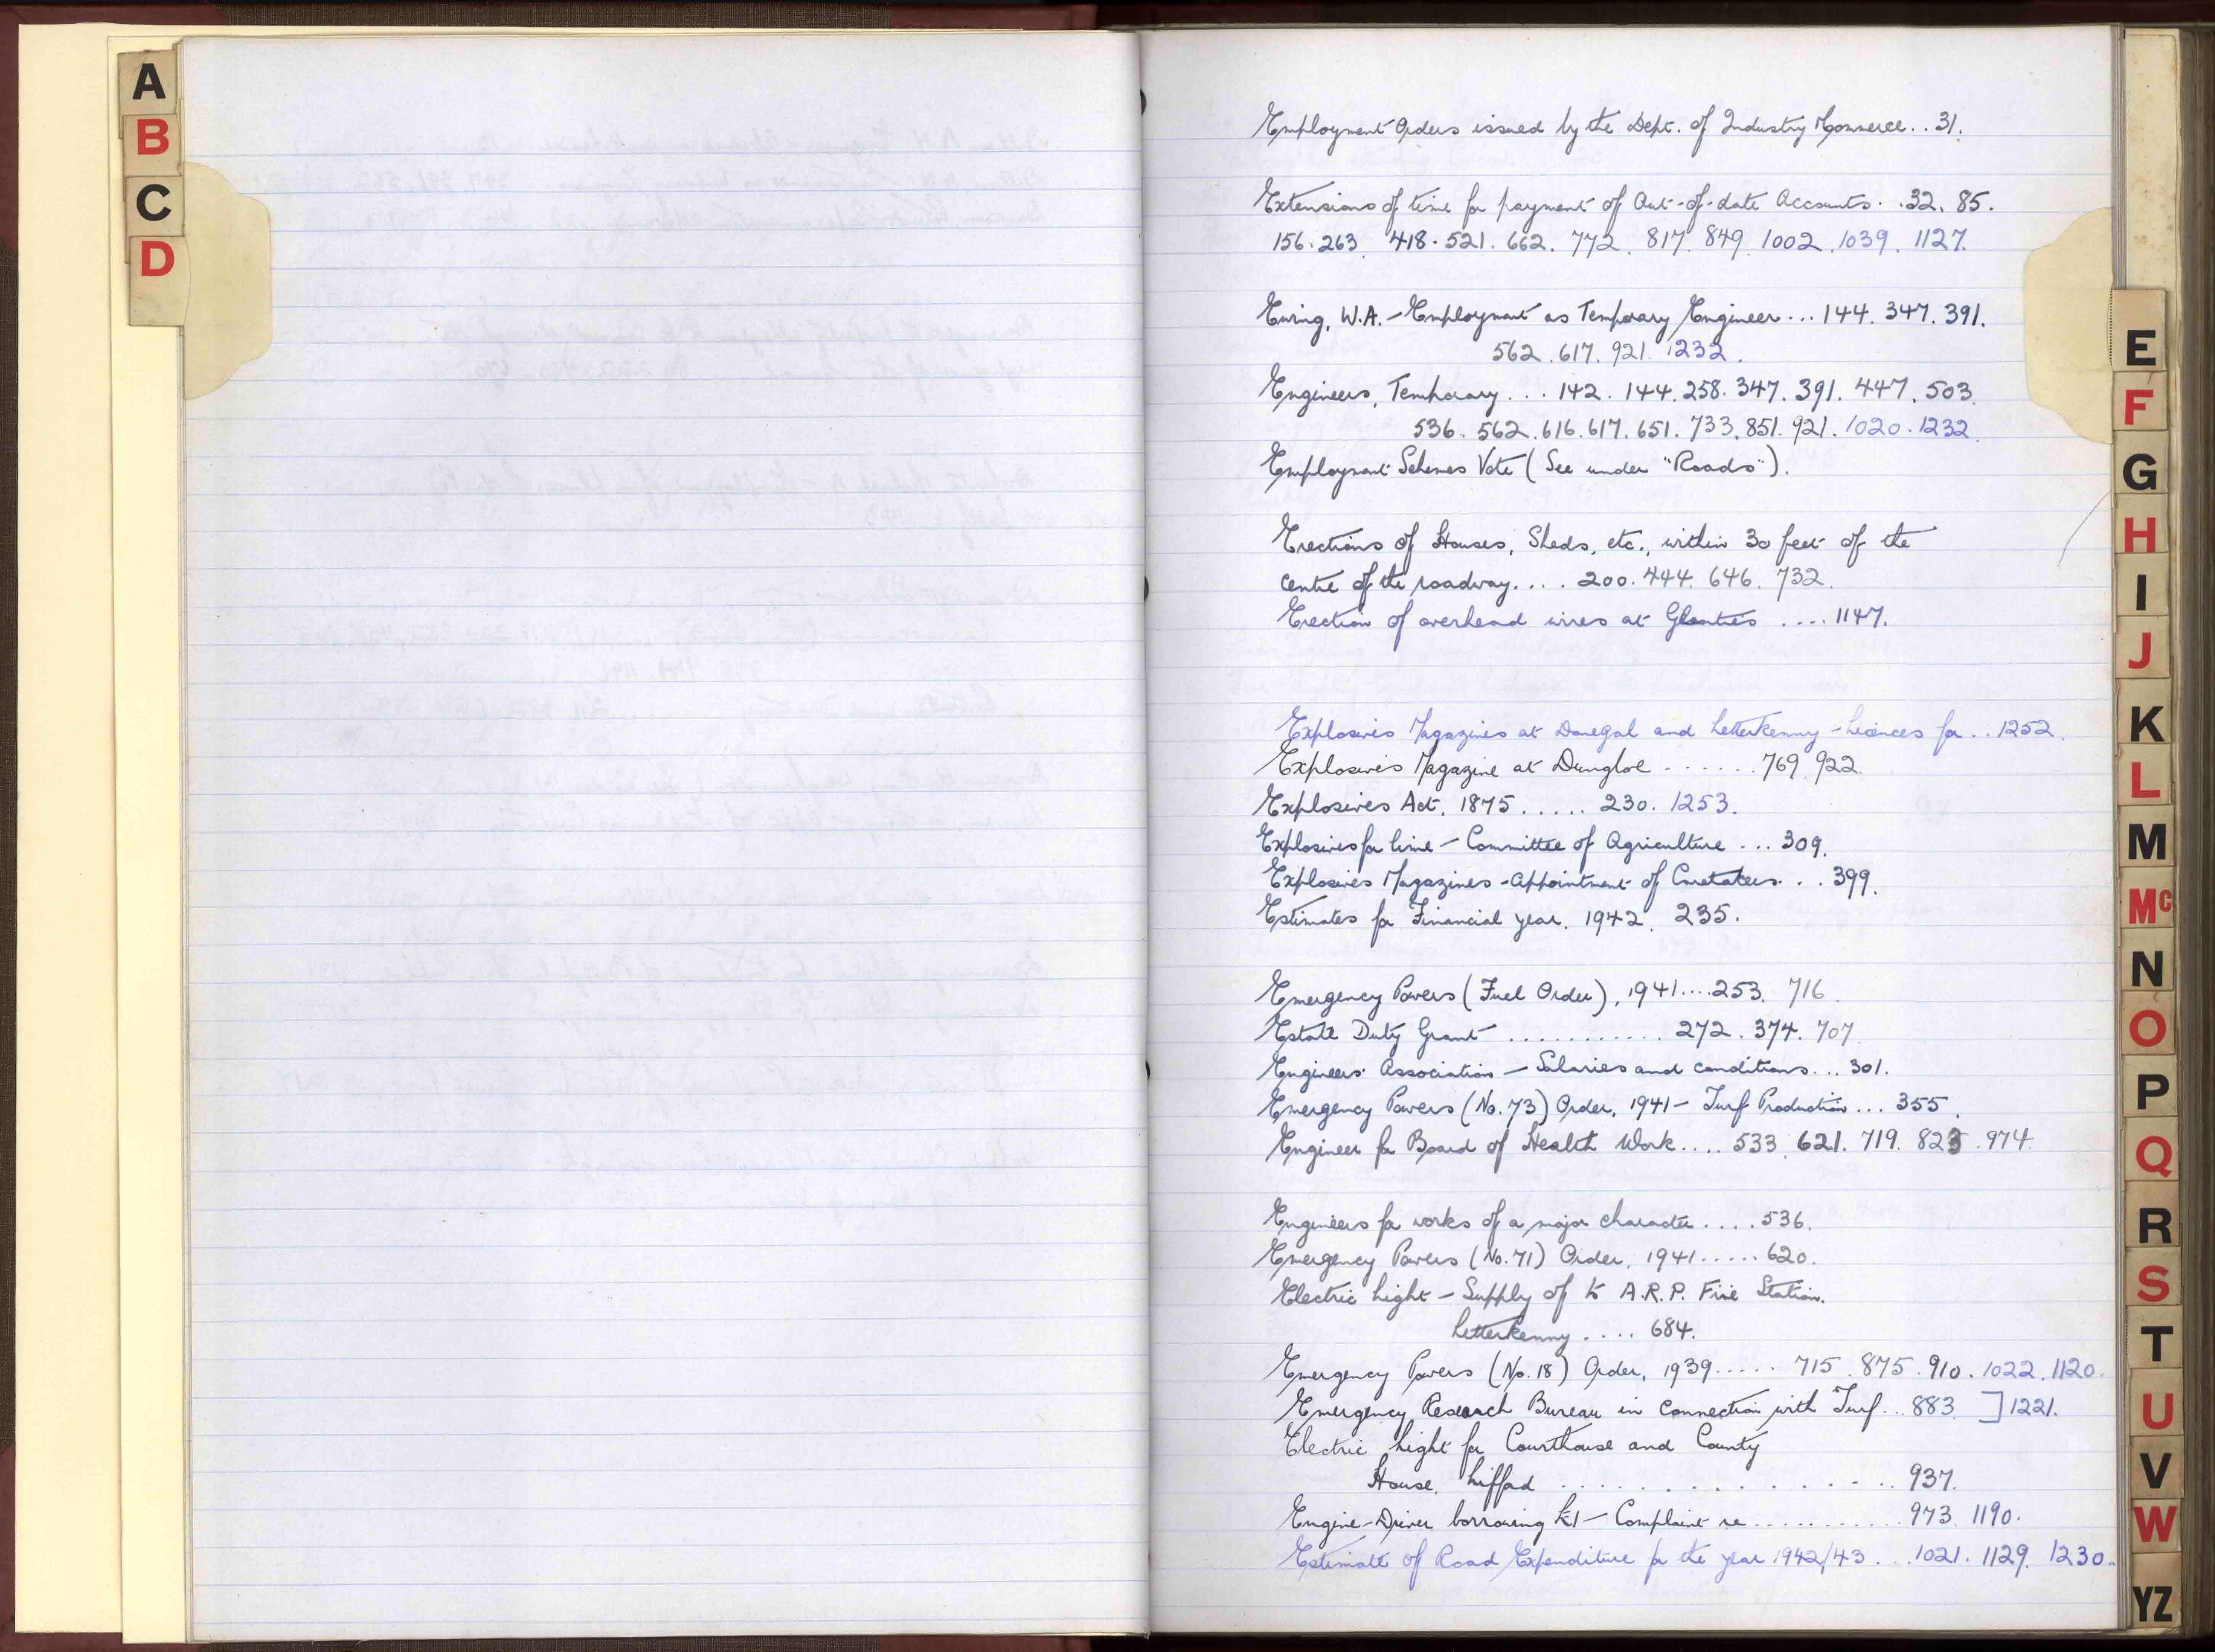 A
B
C
D
Employment Orders issued by the Dept. of Industry & Commerce.. 31.
Extensions of time for payment of Out-of-date Accounts. .32. 85.
156.263. 418.521. 662. 772. 817. 849. 1002. 1039. 1127.
Ewing, W.A. - Employment as Temporary Engineer... 144. 347. 391.
562. 617. 921. 1232.
Engineers, Temporary... 142. 144. 258. 347. 391. 447. 503.
536. 562. 616. 617. 651. 733. 851. 921. 1020. 1232.
Employment Schemes Vote (See under "Roads").
Erections of Houses, Sheds, etc., within 30 feet of the
centre of the roadway.... 200. 444. 646. 732.
Erection of overhead wires at Glenties .... 1147.
Explosives Magazines at Donegal and Letterkenny - Licences for.. 1252.
Explosives Magazine at Dungloe ...... 769. 922.
Explosives Act. 1875 ..... 230. 1253.
Explosives for lime - Committee of Agriculture ... 309.
Explosives Magazines - Appointment of Caretakers. .. 399.
Estimates for Financial year. 1942. 235.
Emergency Powers (Fuel Order), 1941.... 253. 716.
Estate Duty Grant ........... 272. 374. 707
Engineers' Association - Salaries and conditions... 301.
Emergency Powers (No. 73) Order, 1941 - Turf Production... 355.
Engineer for Board of Health Work.... 533. 621. 719. 823. 974.
Engineers for works of a major character.... 536.
Emergency Powers (No. 71) Order, 1941..... 620.
Electric Light - Supply of to A.R.P. Fire Station.
Letterkenny.... 684.
Emergency Powers (No. 18) Order, 1939..... 715. 875. 910. 1022. 1120.
Emergency Research Bureau in connection with Turf... 883. ] 1221.
Electric Light for Courthouse and County
House, Lifford .............. 937.
Engine-Driver borrowing £1 - Complaint re........... 973. 1190.
Estimate of Road Expenditure for the year 1942/43... 1021. 1129. 1230..
E
F
G
H
I
J
K
L
M
Mc
N
O
P
Q
R
S
T
U
V
W
YZ